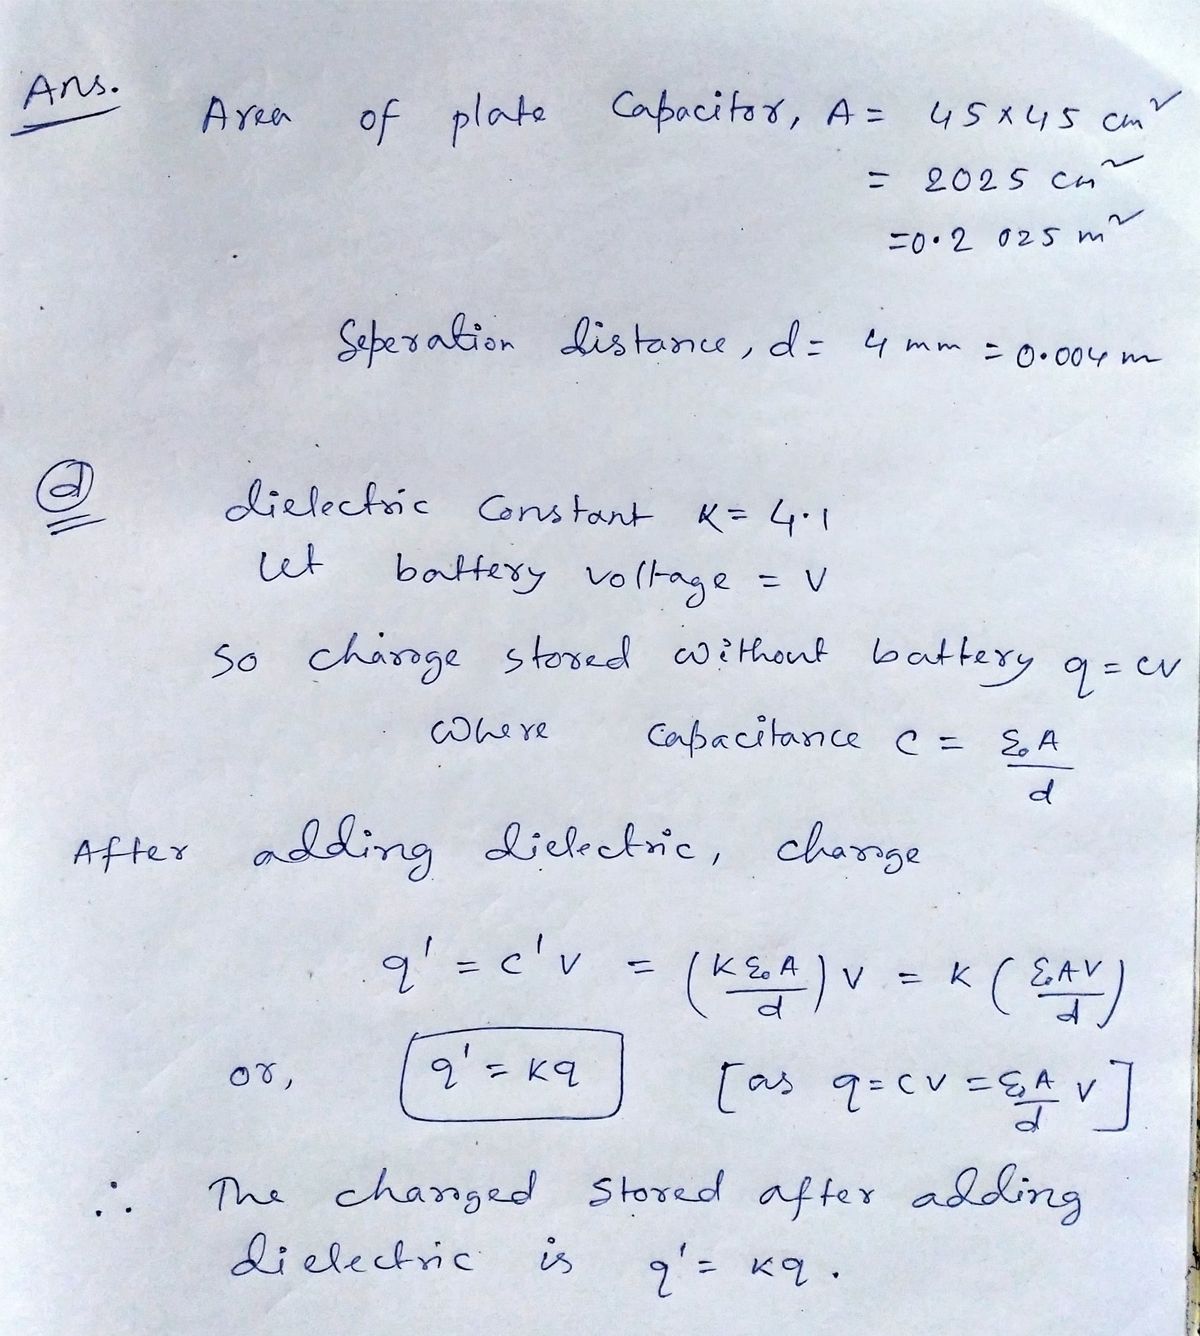 Ans.
Area of plate Capacitor, A = 45 x 45 cm²
= 2025 cm²
=0.2025 m²
Seperation distance, d = 4 mm = 0.004 m
(d)
dielectric Constant K = 4.1
let battery voltage = V
So charge stored without battery q = CV
Where Capacitance C = ε₀A/d
After adding dielectric, charge
q' = c'V = (Kε₀A/d) V = K (ε₀AV/d)
or, q' = Kq [as q = CV = ε₀A/d V]
∴ The charged stored after adding
dielectric is q' = Kq.